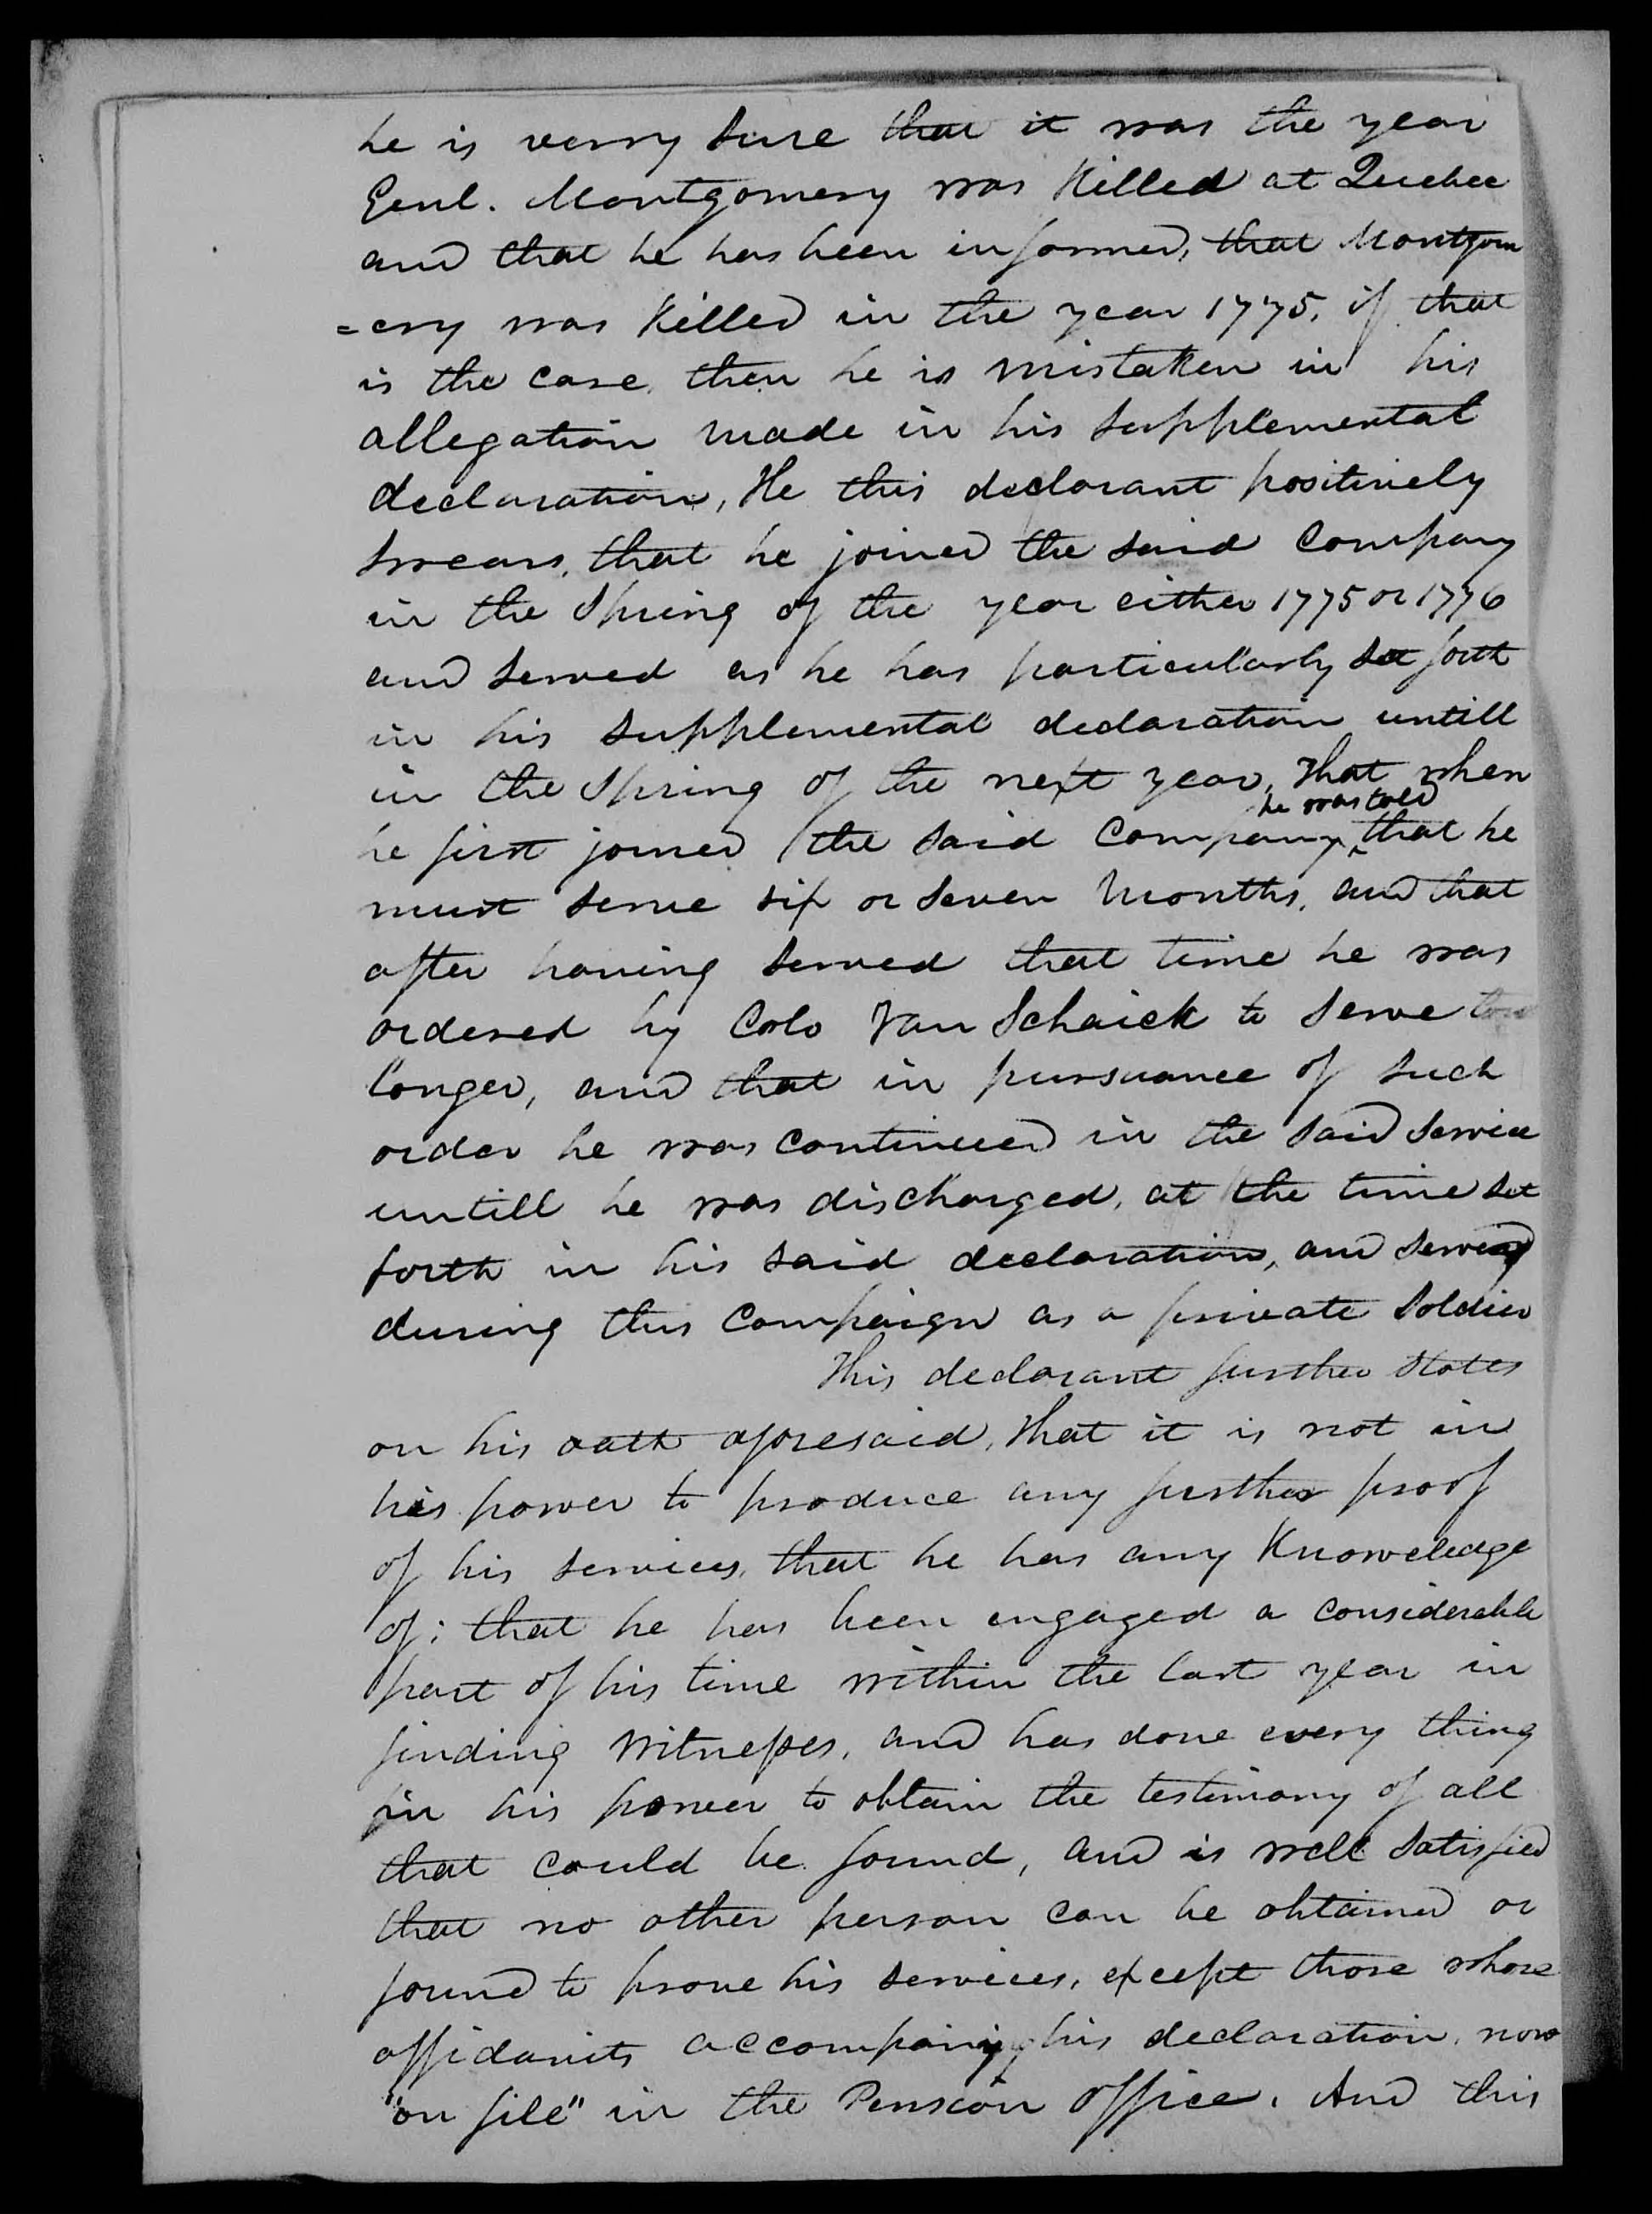 he is verry sure that it was the year
Genl. Montgomery was Killed at Quebec
and that he has been informed, that Montgom
=ery was Killed in the year 1775, if that
is the case, then he is mistaken in his
allegation made in his supplemental
declaration, He this declarant positively
swears, that he joined the said Company
in the Spring of the year either 1775 or 1776
and served as he has particularly set forth
in his supplemental declaration untill
in the Spring of the next year, That when
he was told
he first joined the said Company that he
must serve six or seven Months, and that
after having served that time he was
ordered by Colo Van Schaick to serve
longer, and that in pursuance of such
order he was continued in the said service
untill he was discharged, at the time set
forth in his said declaration, and served
during this Campaign as a private Soldier
This declarant further states
on his oath aforesaid, that it is not in
his power to produce any further proof
of his services, that he has any Knoweledge
of; that he has been engaged a considerable
part of his time within the last year in
finding Witnesses, and has done every thing
in his power to obtain the testimony of all
that could be found, and is well satisfied
that no other person can be obtained or
found to prove his services, except those whose
affidavits accompany his declaration, now
"on file" in the Pension Office. And this